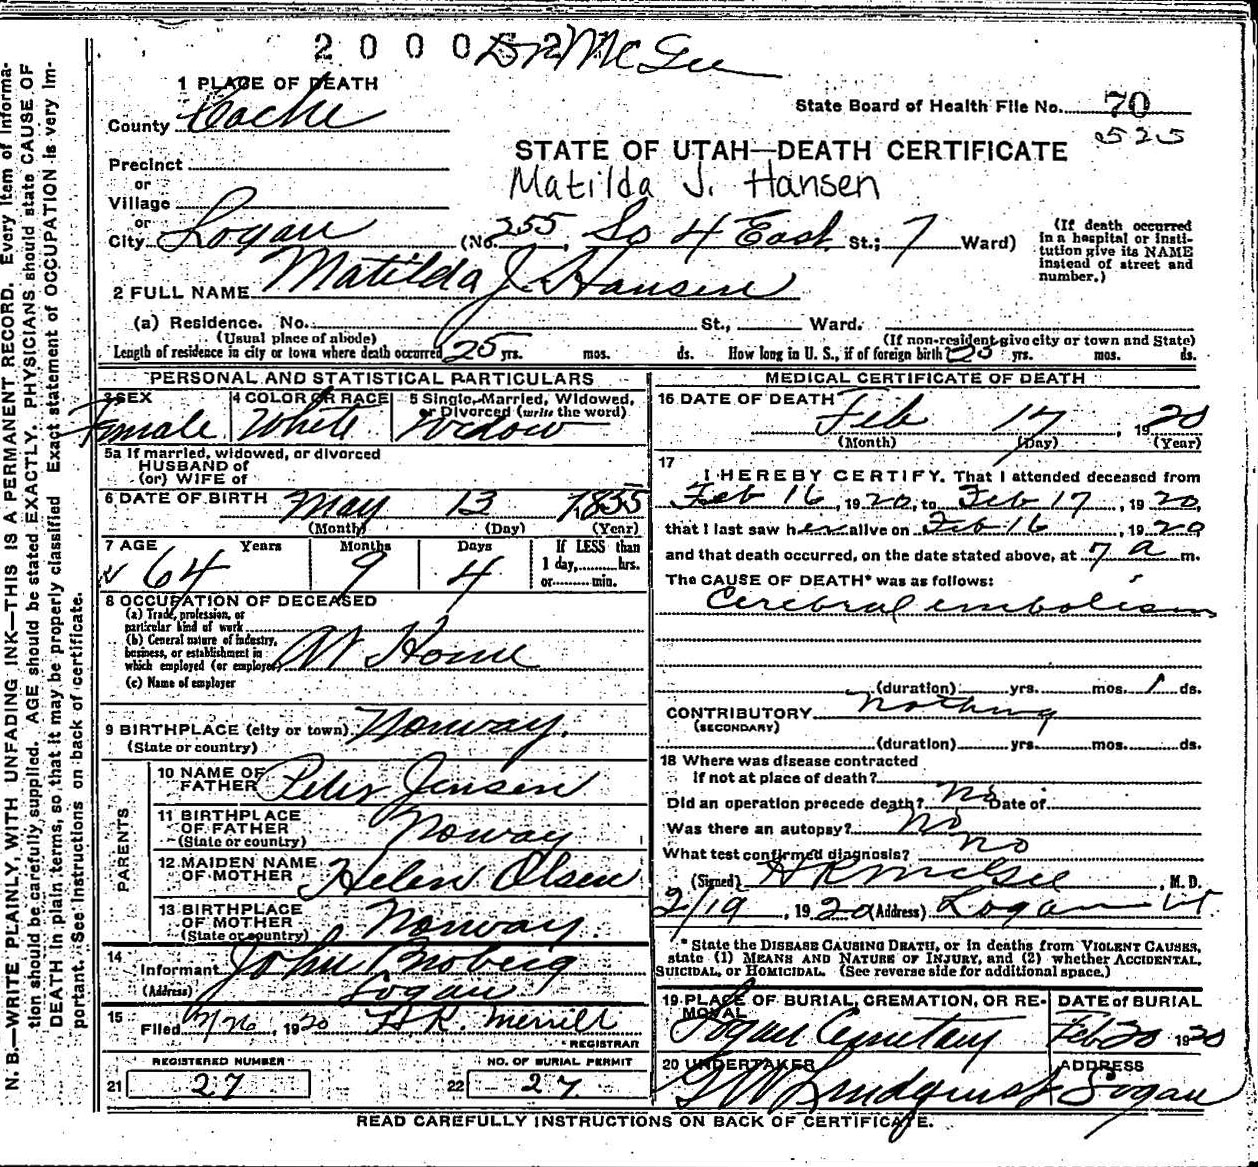 N. B.—WRITE PLAINLY, WITH UNFADING INK—THIS IS A PERMANENT RECORD. Every item of informa-
tion should be carefully supplied. AGE should be stated EXACTLY. PHYSICIANS should state CAUSE OF
DEATH in plain terms, so that it may be properly classified. Exact statement of OCCUPATION is very im-
portant. See instructions on back of certificate.
Dr McGee
1 PLACE OF DEATH
State Board of Health File No. 70
County Cache
525
STATE OF UTAH—DEATH CERTIFICATE
Precinct
Matilda J. Hansen
or
Village
or
City Logan (No. 255, So 4 East St.; 7 Ward) (If death occurred in a hospital or insti-
tution give its NAME instead of street and number.)
2 FULL NAME Matilda J. Hansen
(a) Residence. No. St., Ward.
(Usual place of abode) (If non-resident give city or town and State)
Length of residence in city or town where death occurred 25 yrs. mos. ds. How long in U. S., if of foreign birth? 25 yrs. mos. ds.
PERSONAL AND STATISTICAL PARTICULARS
3 SEX Female
4 COLOR OR RACE White
5 Single, Married, Widowed, or Divorced (write the word) Widow
5a If married, widowed, or divorced
HUSBAND of
(or) WIFE of
6 DATE OF BIRTH May 13 1855
(Month) (Day) (Year)
7 AGE Years Months Days If LESS than
64 9 4 1 day, hrs.
or min.
8 OCCUPATION OF DECEASED
(a) Trade, profession, or
particular kind of work
(b) General nature of industry,
business, or establishment in
which employed (or employer) At Home
(c) Name of employer
9 BIRTHPLACE (city or town) Norway.
(State or country)
PARENTS
10 NAME OF FATHER Peter Jensen
11 BIRTHPLACE OF FATHER Norway
(State or country)
12 MAIDEN NAME OF MOTHER Helen Olsen
13 BIRTHPLACE OF MOTHER Norway.
(State or country)
14
Informant John Broberg
(Address) Logan
15
Filed 2/26, 1920 H.R. Merrill
REGISTRAR
REGISTERED NUMBER
21 27
NO. OF BURIAL PERMIT
22 27
MEDICAL CERTIFICATE OF DEATH
16 DATE OF DEATH
Feb 17, 1920
(Month) (Day) (Year)
17
I HEREBY CERTIFY, That I attended deceased from
Feb 16, 1920, to Feb 17, 1920,
that I last saw her alive on Feb 16, 1920
and that death occurred, on the date stated above, at 7 a m.
The CAUSE OF DEATH* was as follows:
Cerebral embolism
(duration) yrs. mos. 1 ds.
CONTRIBUTORY Nothing
(SECONDARY)
(duration) yrs. mos. ds.
18 Where was disease contracted
if not at place of death?
Did an operation precede death? No Date of
Was there an autopsy? No
What test confirmed diagnosis? no
(Signed) H R McGee, M. D.
2/19, 1920 (Address) Logan Ut
*State the DISEASE CAUSING DEATH, or in deaths from VIOLENT CAUSES,
state (1) MEANS AND NATURE OF INJURY, and (2) whether ACCIDENTAL,
SUICIDAL, or HOMICIDAL. (See reverse side for additional space.)
19 PLACE OF BURIAL, CREMATION, OR RE-
MOVAL
Logan Cemetery
DATE of BURIAL
Feb 20 1920
20 UNDERTAKER
G W Lindquist
ADDRESS
Logan
READ CAREFULLY INSTRUCTIONS ON BACK OF CERTIFICATE.